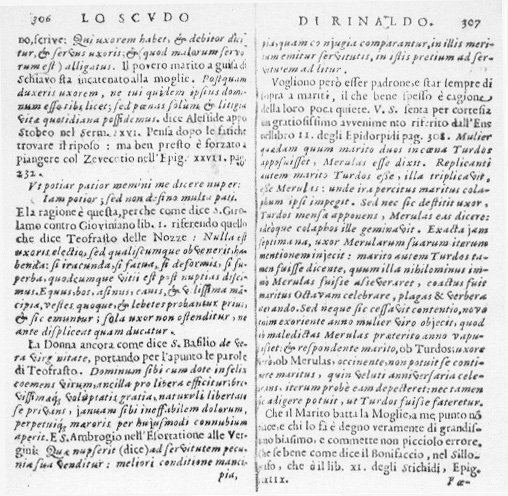 306 LO SCVDO
no, scrive: Qui uxorem habet, & debitor dici-
tur, & servus uxoris, (& quod malorum servo-
rum est) alligatus. Il povero marito a guisa di
Schiavo sta incatenato alla moglie. Postquam
duxeris uxorem, ne tui quidem ipsius domi-
num esse tibi licet; sed pœnas solum & litigia
vita quotidiana possidemus. dice Alesside appo
Stobeo nel Serm. XVI. Pensa dopo le fatiche
trovare il riposo: ma ben presto è forzato a
piangere col Zevecotio nell'Epig. XXVII. pag.
232.
Ut potiar patior memini me dicere nuper:
Iam potior; sed non desino multa pati.
E la ragione è questa, perche come dice S. Giro-
lamo contro Gioviniano lib. 1. riferendo quello
che dice Teofrasto delle Nozze: Nulla est
uxoris electio, sed qualiscumque obvenerit, ha-
benda: si iracunda, si fatua, si deformis, si su-
perba, quodcumque vitii est post nuptias disci-
mus. Equus, bos, asinus, canis, & vilissima ma-
cipia, vestes quoque, & lebetes probantur prius,
& sic emuntur; sola uxor non ostenditur, ne
ante displiceat quam ducatur.
La Donna ancora come dice S. Basilio de ve-
ra virginitate, portando per l'apunto le parole
di Teofrasto. Dominum sibi cum dote infelix
coemens virum, ancilla pro libera efficitur; bre-
vissimaq; voluptatis gratia, naturali libertate
se privans, januam sibi ineffabilem dolorum,
perpetuiq; mæroris per hujusmodi connubium
aperit. E S. Ambrogio nell'Esortatione alle Ver-
gini: Quæ nupserit (dice) ad servitutem pecu-
nia sua venditur: meliori conditione manci-
pia,
DI RINALDO. 307
pia, quam conjugia comparantur, in illis meri-
tum emitur servitutis, in istis pretium ad ser-
vitutem additur.
Vogliono però esser padrone, e star sempre di
sopra a mariti, il che bene spesso è cagione
della loro poca quiete. V. S. senta per cortesia
un gratiosissimo avvenimento riferito dall'Ens
nel libro II. degli Epidorpidi pag. 308. Mulier
quædam quum marito duos in cœna Turdos
apposuisset, Merulas esse dixit. Replicanti
autem marito Turdos esse, illa triplicavit,
esse Merulas: unde ira percitus maritus cola-
phum ipsi impegit. Sed nec sic destitit uxor,
Turdos mensæ apponens, Merulas eas dicere:
ideoque colaphos ille geminavit. Exacta jam
septimana, uxor Merularum suarum iterum
mentionem injecit: marito autem Turdos ta-
men fuisse dicente, quum illa nihilominus im-
mo Merulas fuisse asseveraret, coactus fuit
maritus Octavam celebrare, plagas & verbera
iterando. Sed neque sic cessavit contentio, novo
enim exoriente anno mulier viro objecit, quod
ob maledictas Merulas præterito anno vapu-
lasset; & respondente marito, ob Turdos; uxore
vero, ob Merulas, occinente, non potuit se conti-
nere maritus, quin veluti anniversaria cele-
brans, iterum probe eam depecteret: nec tamen
sic adigere potuit, ut Turdos fuisse fateretur.
Che il Marito batta la Moglie, a me punto non
piace, e chi lo fà è degno veramente di grandis-
simo biasimo, e commette non picciolo errore,
che se bene come dice il Bonifaccio, nel Sillo-
fesso, che è il lib. XI. degli Stichidi, Epig.
Fœ-